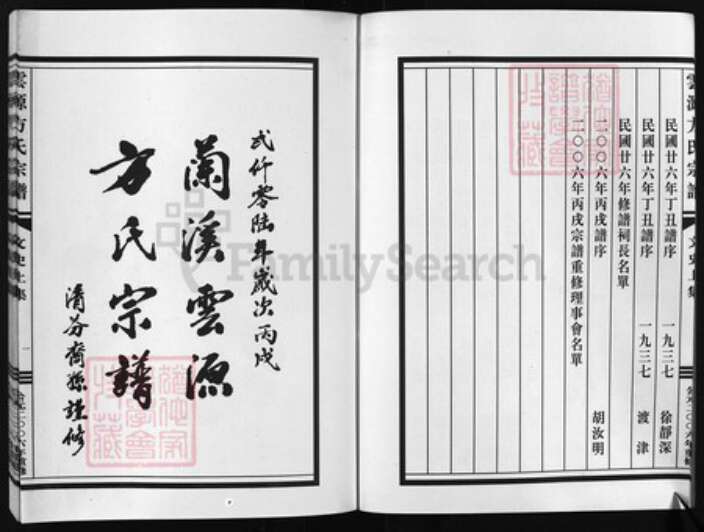 雲源方氏宗譜
文史上集
民國廿六年丁丑譜序 一九三七 徐靜深
民國廿六年丁丑譜序 一九三七 渡津
民國廿六年修譜祠長名單
二〇〇六年丙戌譜序 胡汝明
二〇〇六年丙戌宗譜重修理事會名單
弍仟零陸年歲次丙戌
蘭溪雲源
方氏宗譜
清芬裔孫謹修
雲源方氏宗譜
文史上集
一
FamilySearch